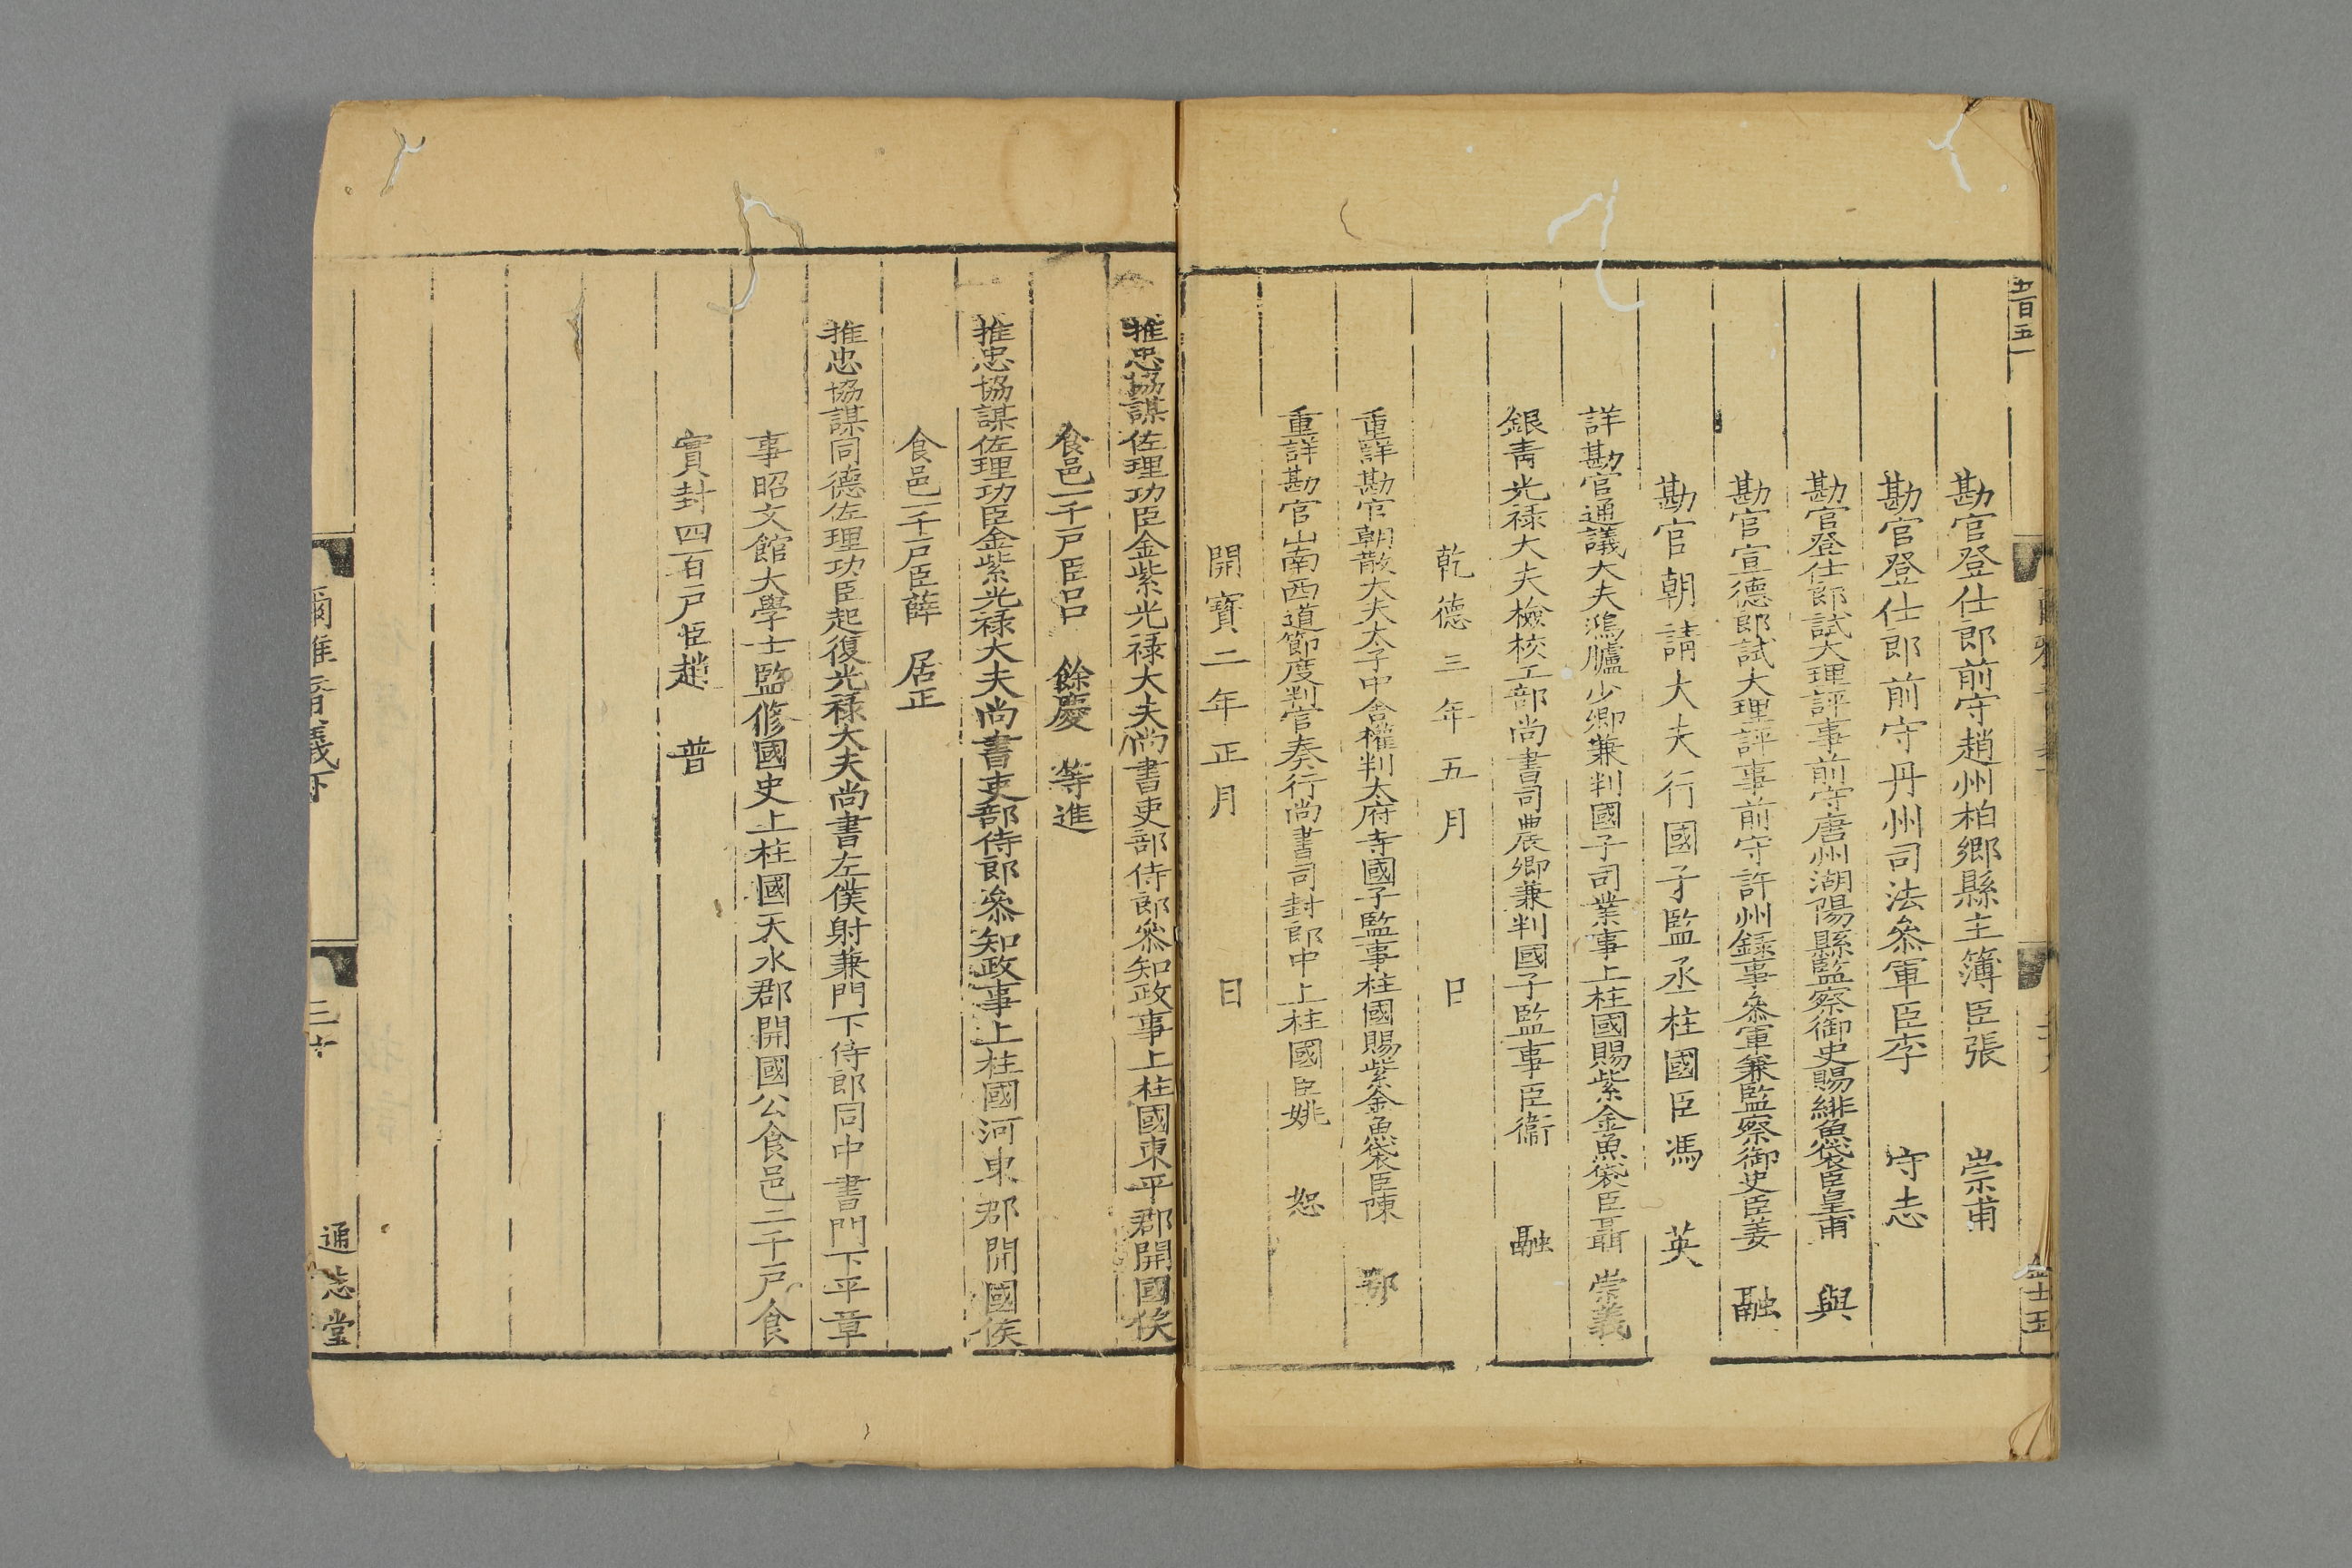 勘官登仕郎前守趙州柏鄉縣主簿臣張 崇甫
勘官登仕郎前守丹州司法叅軍臣李 守志
勘官登仕郎試大理評事前守唐州湖陽縣監察御史賜緋魚袋臣皇甫 與
勘官宣德郎試大理評事前守許州錄事叅軍兼監察御史臣姜 融
勘官朝請大夫行國子監丞柱國臣馮 英
詳勘官通議大夫鴻臚少卿兼判國子司業事上柱國賜紫金魚袋臣聶 崇義
銀青光禄大夫檢校工部尚書司農卿兼判國子監事臣衞 融
乾德三年五月 日
重詳勘官朝散大夫太子中舍權判太府寺國子監事柱國賜紫金魚袋臣陳 鄂
重詳勘官山南西道節度判官奏行尚書司封郎中上柱國臣姚 恕
開寳二年正月 日
推忠協謀佐理功臣金紫光禄大夫尚書吏部侍郎叅知政事上柱國東平郡開國侯
食邑一千戸臣吕 餘慶 等進
推忠協謀佐理功臣金紫光禄大夫尚書吏部侍郎叅知政事上柱國河東郡開國侯
食邑一千戸臣薛 居正
推忠協謀同德佐理功臣起復光禄大夫尚書左僕射兼門下侍郎同中書門下平章
事昭文館大學士監修國史上柱國天水郡開國公食邑二千戸食
實封四百戸臣趙 普
爾雅音義下
三十
通志堂